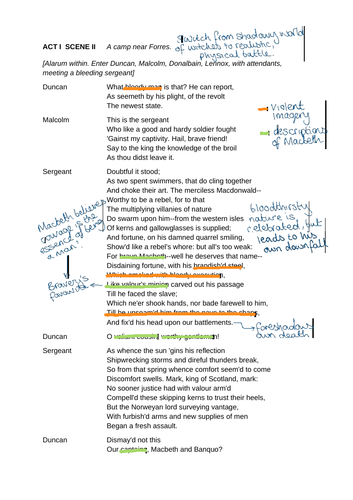 switch from shadowy world
of witches to realistic,
physical battle.
ACT I SCENE II A camp near Forres.
[Alarum within. Enter Duncan, Malcolm, Donalbain, Lennox, with attendants,
meeting a bleeding sergeant]
Duncan What bloody man is that? He can report,
As seemeth by his plight, of the revolt
The newest state.
violent
imagery
descriptions
of Macbeth
Malcolm This is the sergeant
Who like a good and hardy soldier fought
'Gainst my captivity. Hail, brave friend!
Say to the king the knowledge of the broil
As thou didst leave it.
Sergeant Doubtful it stood;
As two spent swimmers, that do cling together
And choke their art. The merciless Macdonwald--
Worthy to be a rebel, for to that
The multiplying villanies of nature
Do swarm upon him--from the western isles
Of kerns and gallowglasses is supplied;
And fortune, on his damned quarrel smiling,
Show'd like a rebel's whore: but all's too weak:
For brave Macbeth--well he deserves that name--
Disdaining fortune, with his brandish'd steel,
Which smoked with bloody execution,
Like valour's minion carved out his passage
Till he faced the slave;
Which ne'er shook hands, nor bade farewell to him,
Till he unseam'd him from the nave to the chaps,
And fix'd his head upon our battlements.
Macbeth believes
courage is the
essence of being
a man!
Bravery's
favourite
bloodthirsty
nature is
celebrated, but
leads to his
own downfall
foreshadows
own death
Duncan O valiant cousin! worthy gentleman!
Sergeant As whence the sun 'gins his reflection
Shipwrecking storms and direful thunders break,
So from that spring whence comfort seem'd to come
Discomfort swells. Mark, king of Scotland, mark:
No sooner justice had with valour arm'd
Compell'd these skipping kerns to trust their heels,
But the Norweyan lord surveying vantage,
With furbish'd arms and new supplies of men
Began a fresh assault.
Duncan Dismay'd not this
Our captains, Macbeth and Banquo?